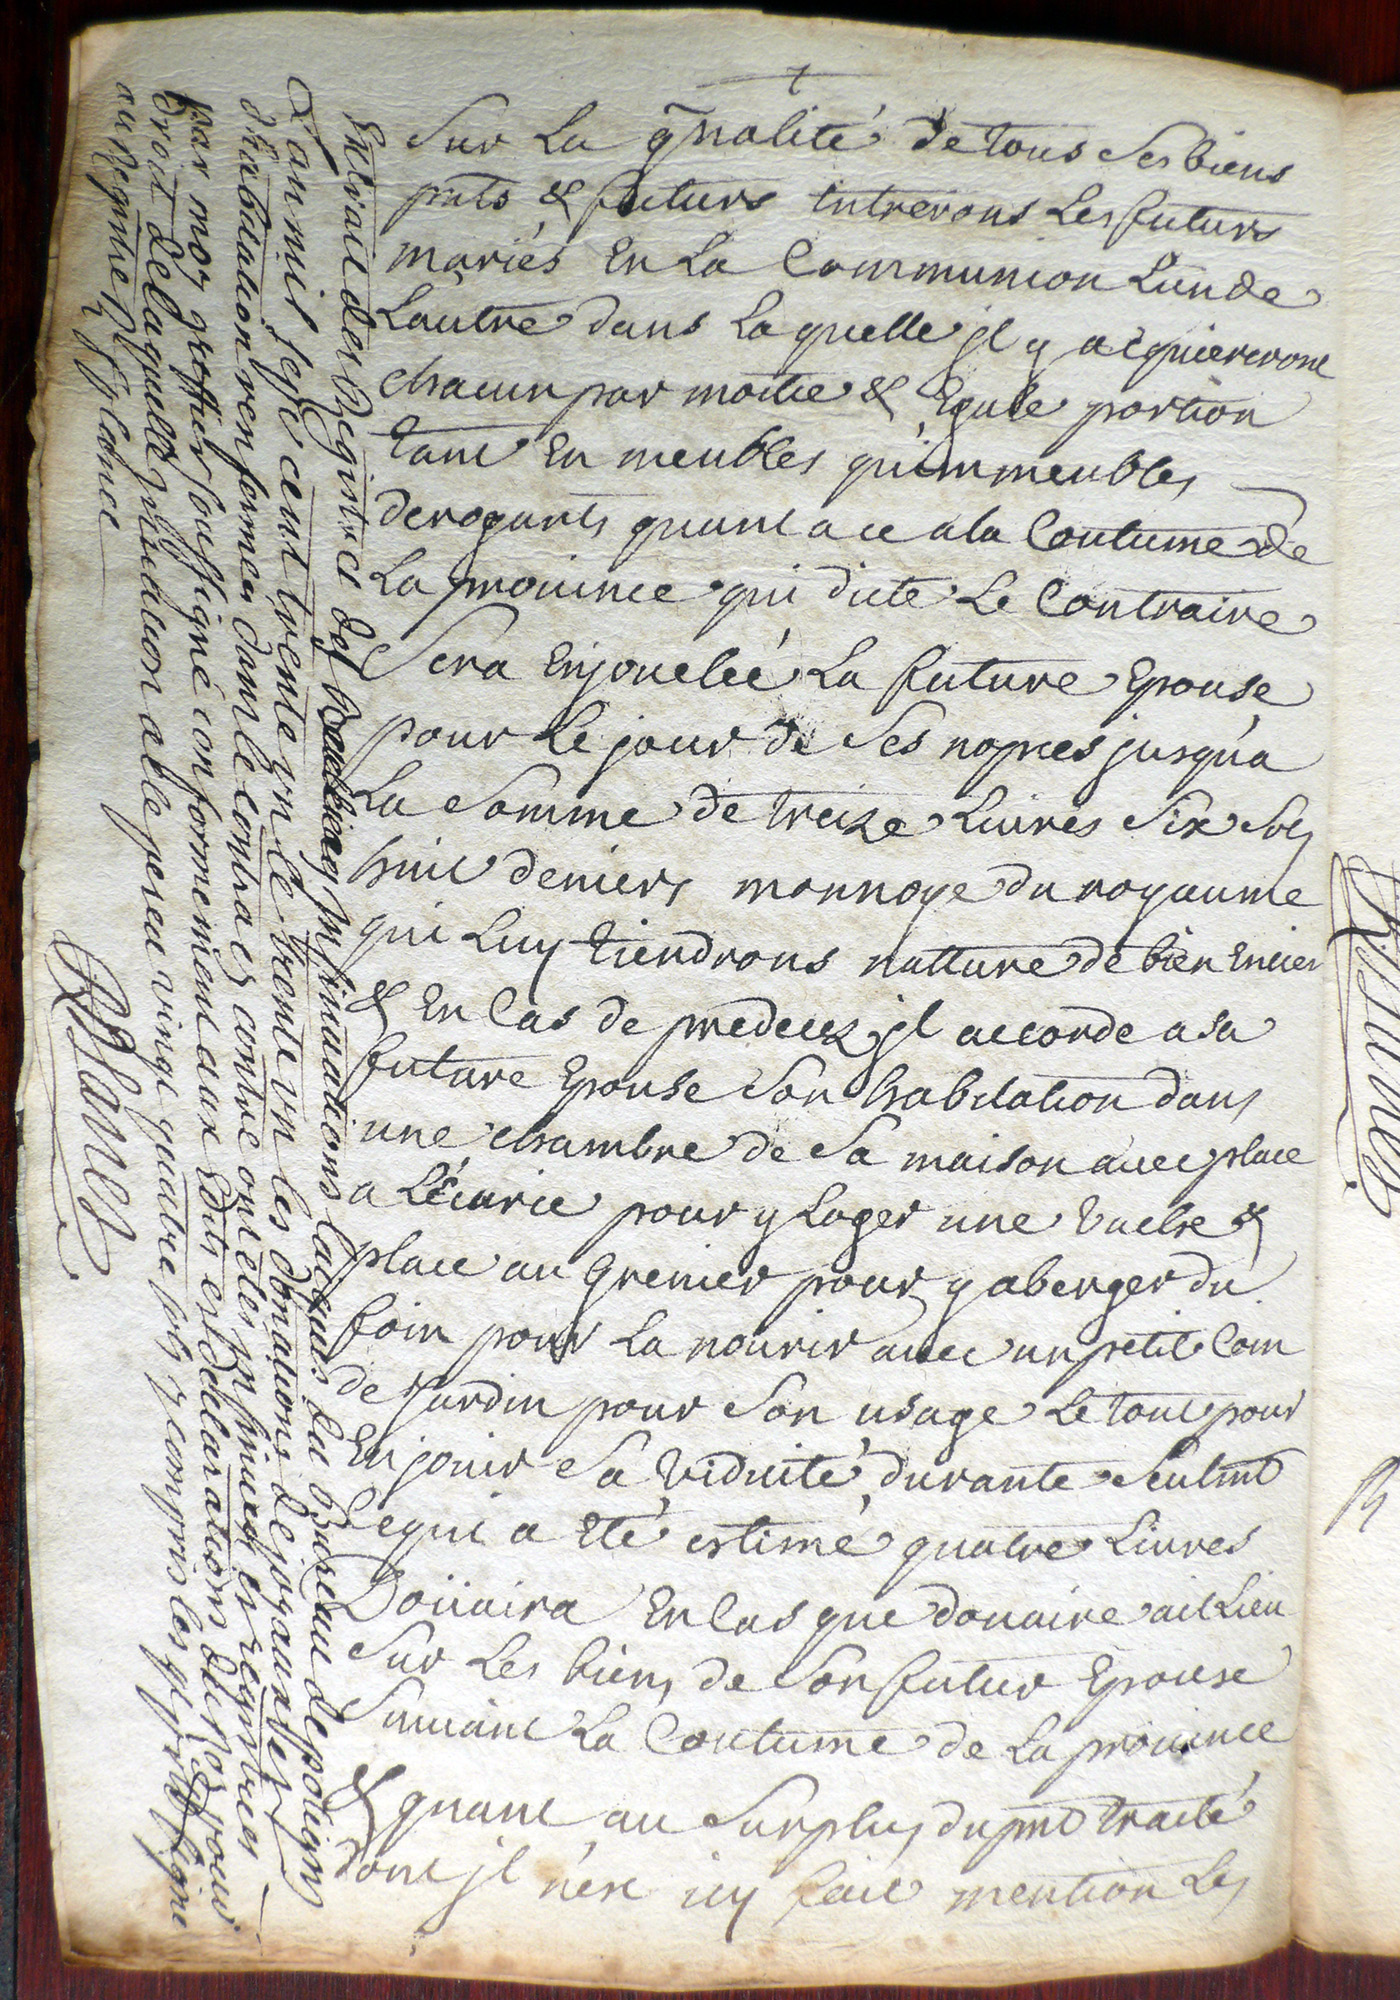 Sur La g̃nalité de tous Ses biens
pnts & futurs Entrerons Les futurs
mariés En La Communion L'un de
Lautre dans Laquelle jl y acquiererons
chacun par moitie & Egale portion
tant En meubles qu'immeubles
derogants quant a ce a la Coutume de
La prouince qui dicte Le Contraire
Sera Enjouelée La future Epouse
pour Le jour de Ses nopces jusqu'a
La Somme de treize Liures Six Sols
huit deniers monnoye du royaume
qui Luy tiendrons natture de bien Encien
& En Cas de predecez jl accorde a sa
future Epouse Son habitation dans
une chambre de Sa maison auec place
a L'écurie pour y Loger une Vache &
place au Grenier pour y aberger du
foin pour La nourir auec un petit Coin
de Jardin pour Son usage Le tout pour
En jouir Sa Viduité durante Seulmt
Ce qui a Eté estimé quatre Liures
Doüaira En Cas que douaire ait Lieu
Sur Les biens de Son futur Epouse
Suiuant La Coutume de La prouince
& quant au Surplus du pnt traité
dont jl n'est icy fait mention Les
Extrait des Registres des Insinuations Laiques du Bureau de poligny
L'an mil sept cent trente un le trente un les donations de joyaux et
d'habitation renfermées dans le contract contre ont étés Insinuées et registrées
par moy greffier soussigné conformement aux Edits et declarations du Roy pour
droit de laquelle Insinuation a été perçu vingt quatre sols y compris les
au Registre
RSanez